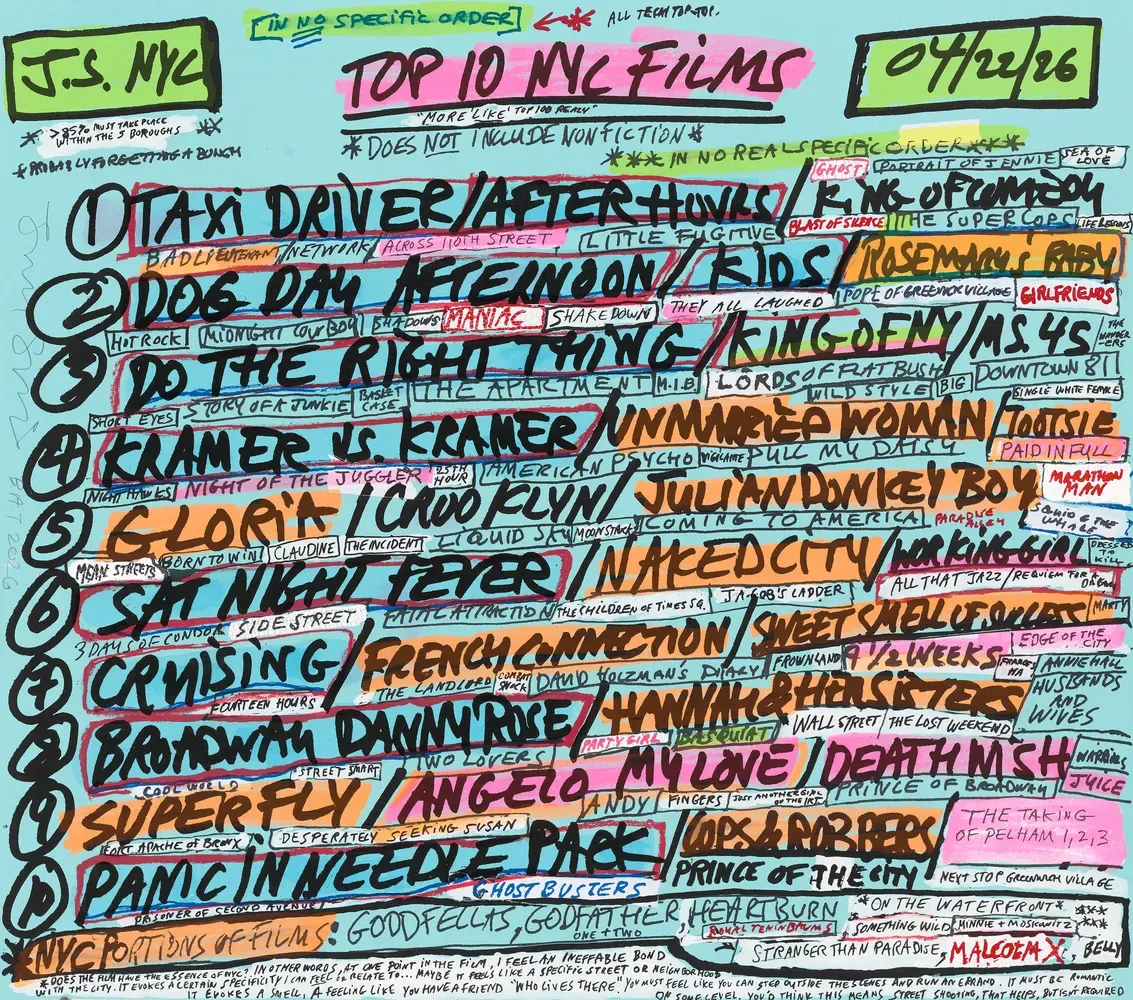 [IN NO SPECIFIC ORDER] ← * ALL TERM TOP-TOP.
J.S. NYC
TOP 10 NYC FILMS
04/22/26
"MORE 'LIKE' TOP 100 REALLY"
* >85% MUST TAKE PLACE WITHIN THE 5 BOROUGHS *
*DOES NOT INCLUDE NONFICTION*
*PROBABLY FORGETTING A BUNCH
*** IN NO REAL SPECIFIC ORDER***
GHOST PORTRAIT OF JENNIE SEA OF LOVE
1 TAXI DRIVER/AFTER HOURS/KING OF COMEDY
BLAST OF SILENCE THE SUPER COPS LIFE LESSONS
BAD LIEUTENANT/NETWORK/ACROSS 110TH STREET LITTLE FUGITIVE
2 DOG DAY AFTERNOON/KIDS/ROSEMARY'S BABY
THEY ALL LAUGHED POPE OF GREENWICH VILLAGE GIRLFRIENDS
HOT ROCK MIDNIGHT COWBOY SHADOWS MANIAC SHAKEDOWN
3 DO THE RIGHT THING/KING OF NY/MS. 45 THE WANDER-ERS
SHORT EYES STORY OF A JUNKIE BASKET CASE THE APARTMENT M.I.B. LORDS OF FLATBUSH WILD STYLE BIG DOWNTOWN 81 SINGLE WHITE FEMALE
4 KRAMER VS. KRAMER/UNMARRIED WOMAN/TOOTSIE
NIGHT HAWKS NIGHT OF THE JUGGLER 25TH HOUR AMERICAN PSYCHO VIGILANTE PULL MY DAISY PAID IN FULL
5 GLORIA CROOKLYN/JULIAN DONKEY BOY MARATHON MAN
MEAN STREETS BORN TO WIN CLAUDINE THE INCIDENT LIQUID SKY MOONSTRUCK COMING TO AMERICA PARADISE ALLEY SQUID & THE WHALE
6 SAT NIGHT FEVER/NAKED CITY/WORKING GIRL DRESSED TO KILL
3 DAYS OF CONDOR SIDE STREET FATAL ATTRACTION THE CHILDREN OF TIMES SQ. JACOB'S LADDER ALL THAT JAZZ/REQUIEM FOR A DREAM
7 CRUISING/FRENCH CONNECTION/SWEET SMELL OF SUCCESS MARTY
FOURTEEN HOURS THE LANDLORD COMBAT SHOCK DAVID HOLZMAN'S DIARY FROWNLAND 9 1/2 WEEKS FRANCES HA EDGE OF THE CITY ANNIE HALL
8 BROADWAY DANNY ROSE/HANNAH & HER SISTERS HUSBANDS AND WIVES
COOL WORLD STREET SMART TWO LOVERS PARTY GIRL BASQUIAT WALL STREET THE LOST WEEKEND
9 SUPERFLY/ANGELO MY LOVE/DEATH WISH WARRIORS
FORT APACHE OF BRONX DESPERATELY SEEKING SUSAN ANDY FINGERS JUST ANOTHER GIRL ON THE IRT PRINCE OF BROADWAY JUICE
10 PANIC IN NEEDLE PARK/COPS & ROBBERS/THE TAKING OF PELHAM 1,2,3
PRISONER OF SECOND AVENUE GHOSTBUSTERS PRINCE OF THE CITY NEXT STOP GREENWICH VILLAGE
*NYC PORTIONS OF FILMS: GOODFELLAS, GODFATHER ONE + TWO HEARTBURN *ON THE WATERFRONT*
ROYAL TENENBAUMS SOMETHING WILD MINNIE + MOSKOWITZ ***
STRANGER THAN PARADISE, MALCOLM X, BELLY
*DOES THE FILM HAVE THE ESSENCE OF NYC? IN OTHER WORDS, AT ONE POINT IN THE FILM, I FEEL AN INEFFABLE BOND
WITH THE CITY. IT EVOKES A CERTAIN SPECIFICITY I CAN FEEL OR RELATE TO... MAYBE IT FEELS LIKE A SPECIFIC STREET OR NEIGHBORHOOD
IT EVOKES A SMELL, A FEELING LIKE YOU HAVE A FRIEND "WHO LIVES THERE." YOU MUST FEEL LIKE YOU CAN STEP OUTSIDE THE SCENES AND RUN AN ERRAND. IT MUST BE ROMANTIC
ON SOME LEVEL. YOU'D THINK THIS MEANS STREET SHOOTING, THAT HELPS, BUT ISN'T REQUIRED